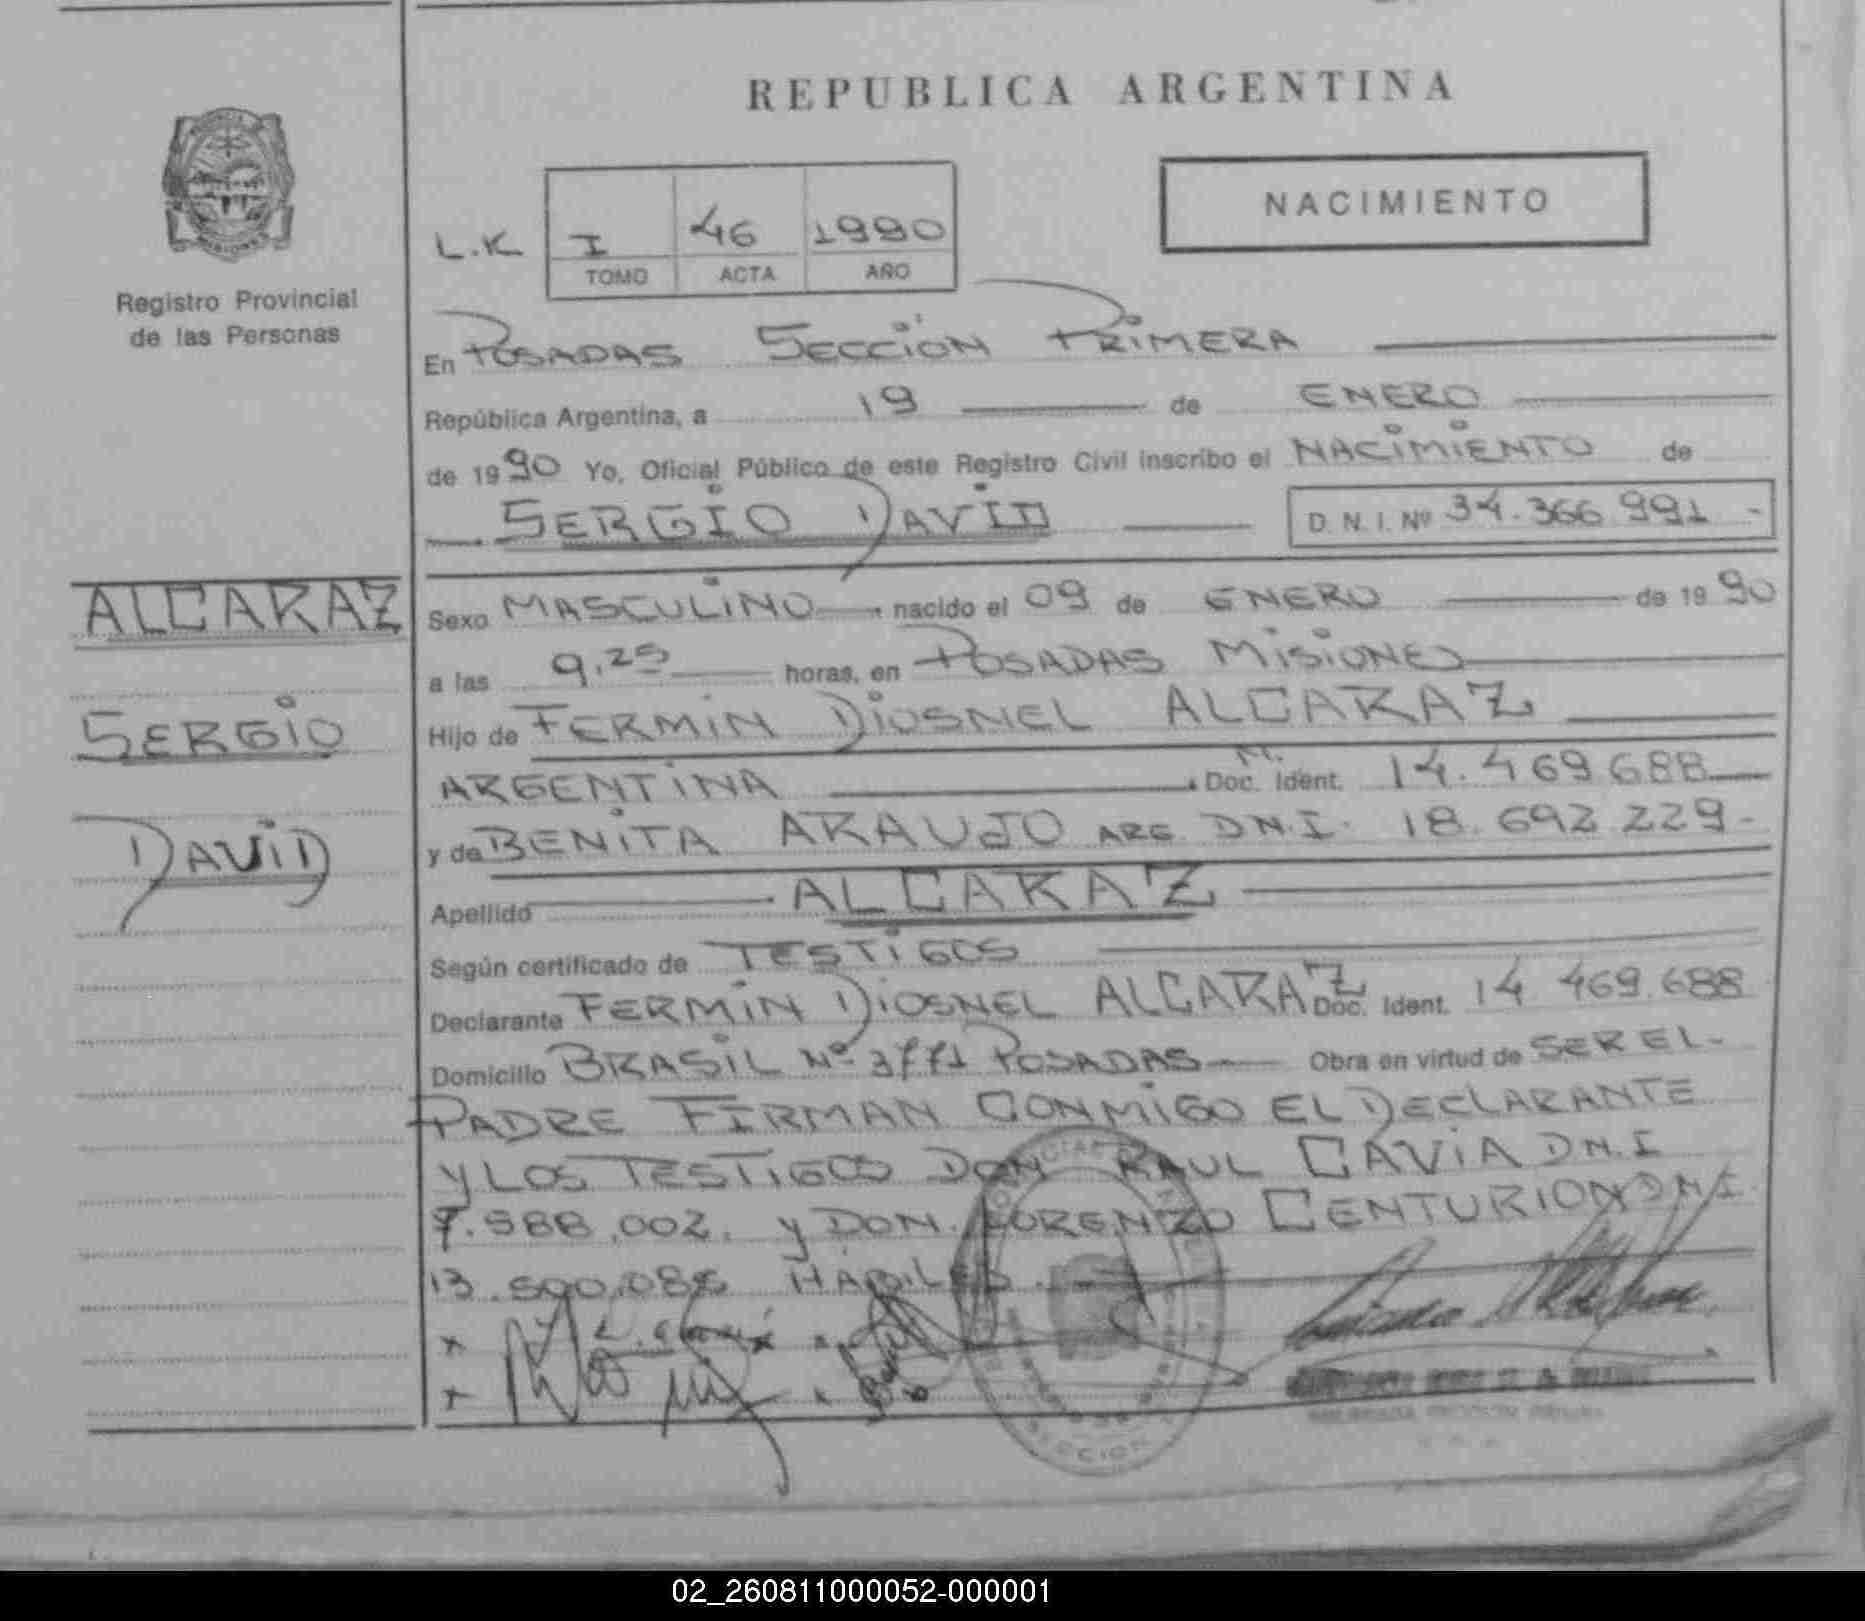 REPUBLICA ARGENTINA
NACIMIENTO
L.K I 46 1990
TOMO ACTA AÑO
Registro Provincial
de las Personas
En POSADAS SECCIÓN PRIMERA
República Argentina, a 19 de ENERO
de 1990 Yo, Oficial Público de este Registro Civil inscribo el NACIMIENTO de
SERGIO DAVID D.N.I. Nº 34.366.991 -
ALCARAZ
SERGIO
DAVID
Sexo MASCULINO nacido el 09 de ENERO de 1990
a las 9.25 horas, en POSADAS MISIONES
Hijo de FERMIN DIOSNEL ALCARAZ
ARGENTINA M. Doc. Ident. 14.469.688
y de BENITA ARAUJO ARG. D.N.I. 18.692.229-
Apellido ALCARAZ
Según certificado de TESTIGOS
Declarante FERMIN DIOSNEL ALCARAZ Doc. Ident. 14 469.688
Domicilio BRASIL Nº POSADAS Obra en virtud de SER EL-
PADRE FIRMAN CONMIGO EL DECLARANTE
Y LOS TESTIGOS DON RAUL GAVIA D.N.I
7.588.002. y DON. LORENZO CENTURION D.N.I.
HABILES
SECCION
02_260811000052-000001